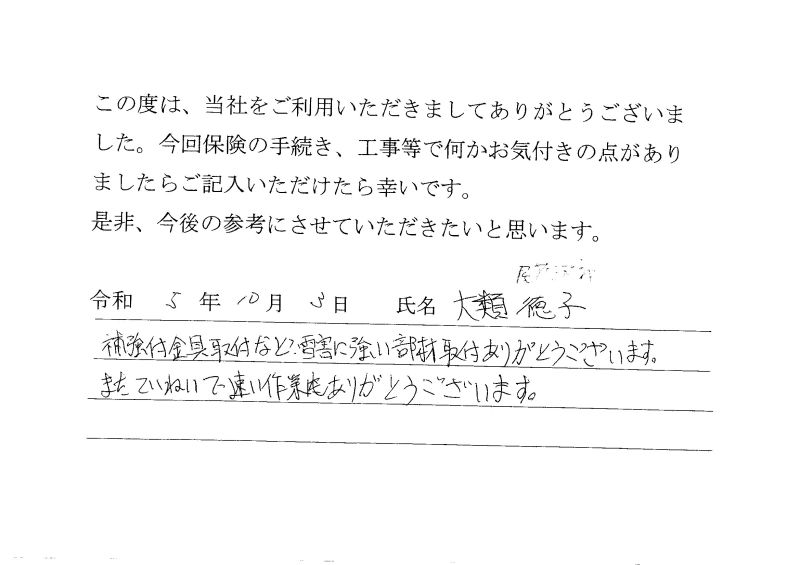 この度は、当社をご利用いただきましてありがとうございま
した。今回保険の手続き、工事等で何かお気付きの点があり
ましたらご記入いただけたら幸いです。
是非、今後の参考にさせていただきたいと思います。
令和 5 年 10 月 3 日 氏名 大類 徳子
補強付金具取付など、雪害に強い部材取付ありがとうございます。
またていねいで速い作業もありがとうございます。